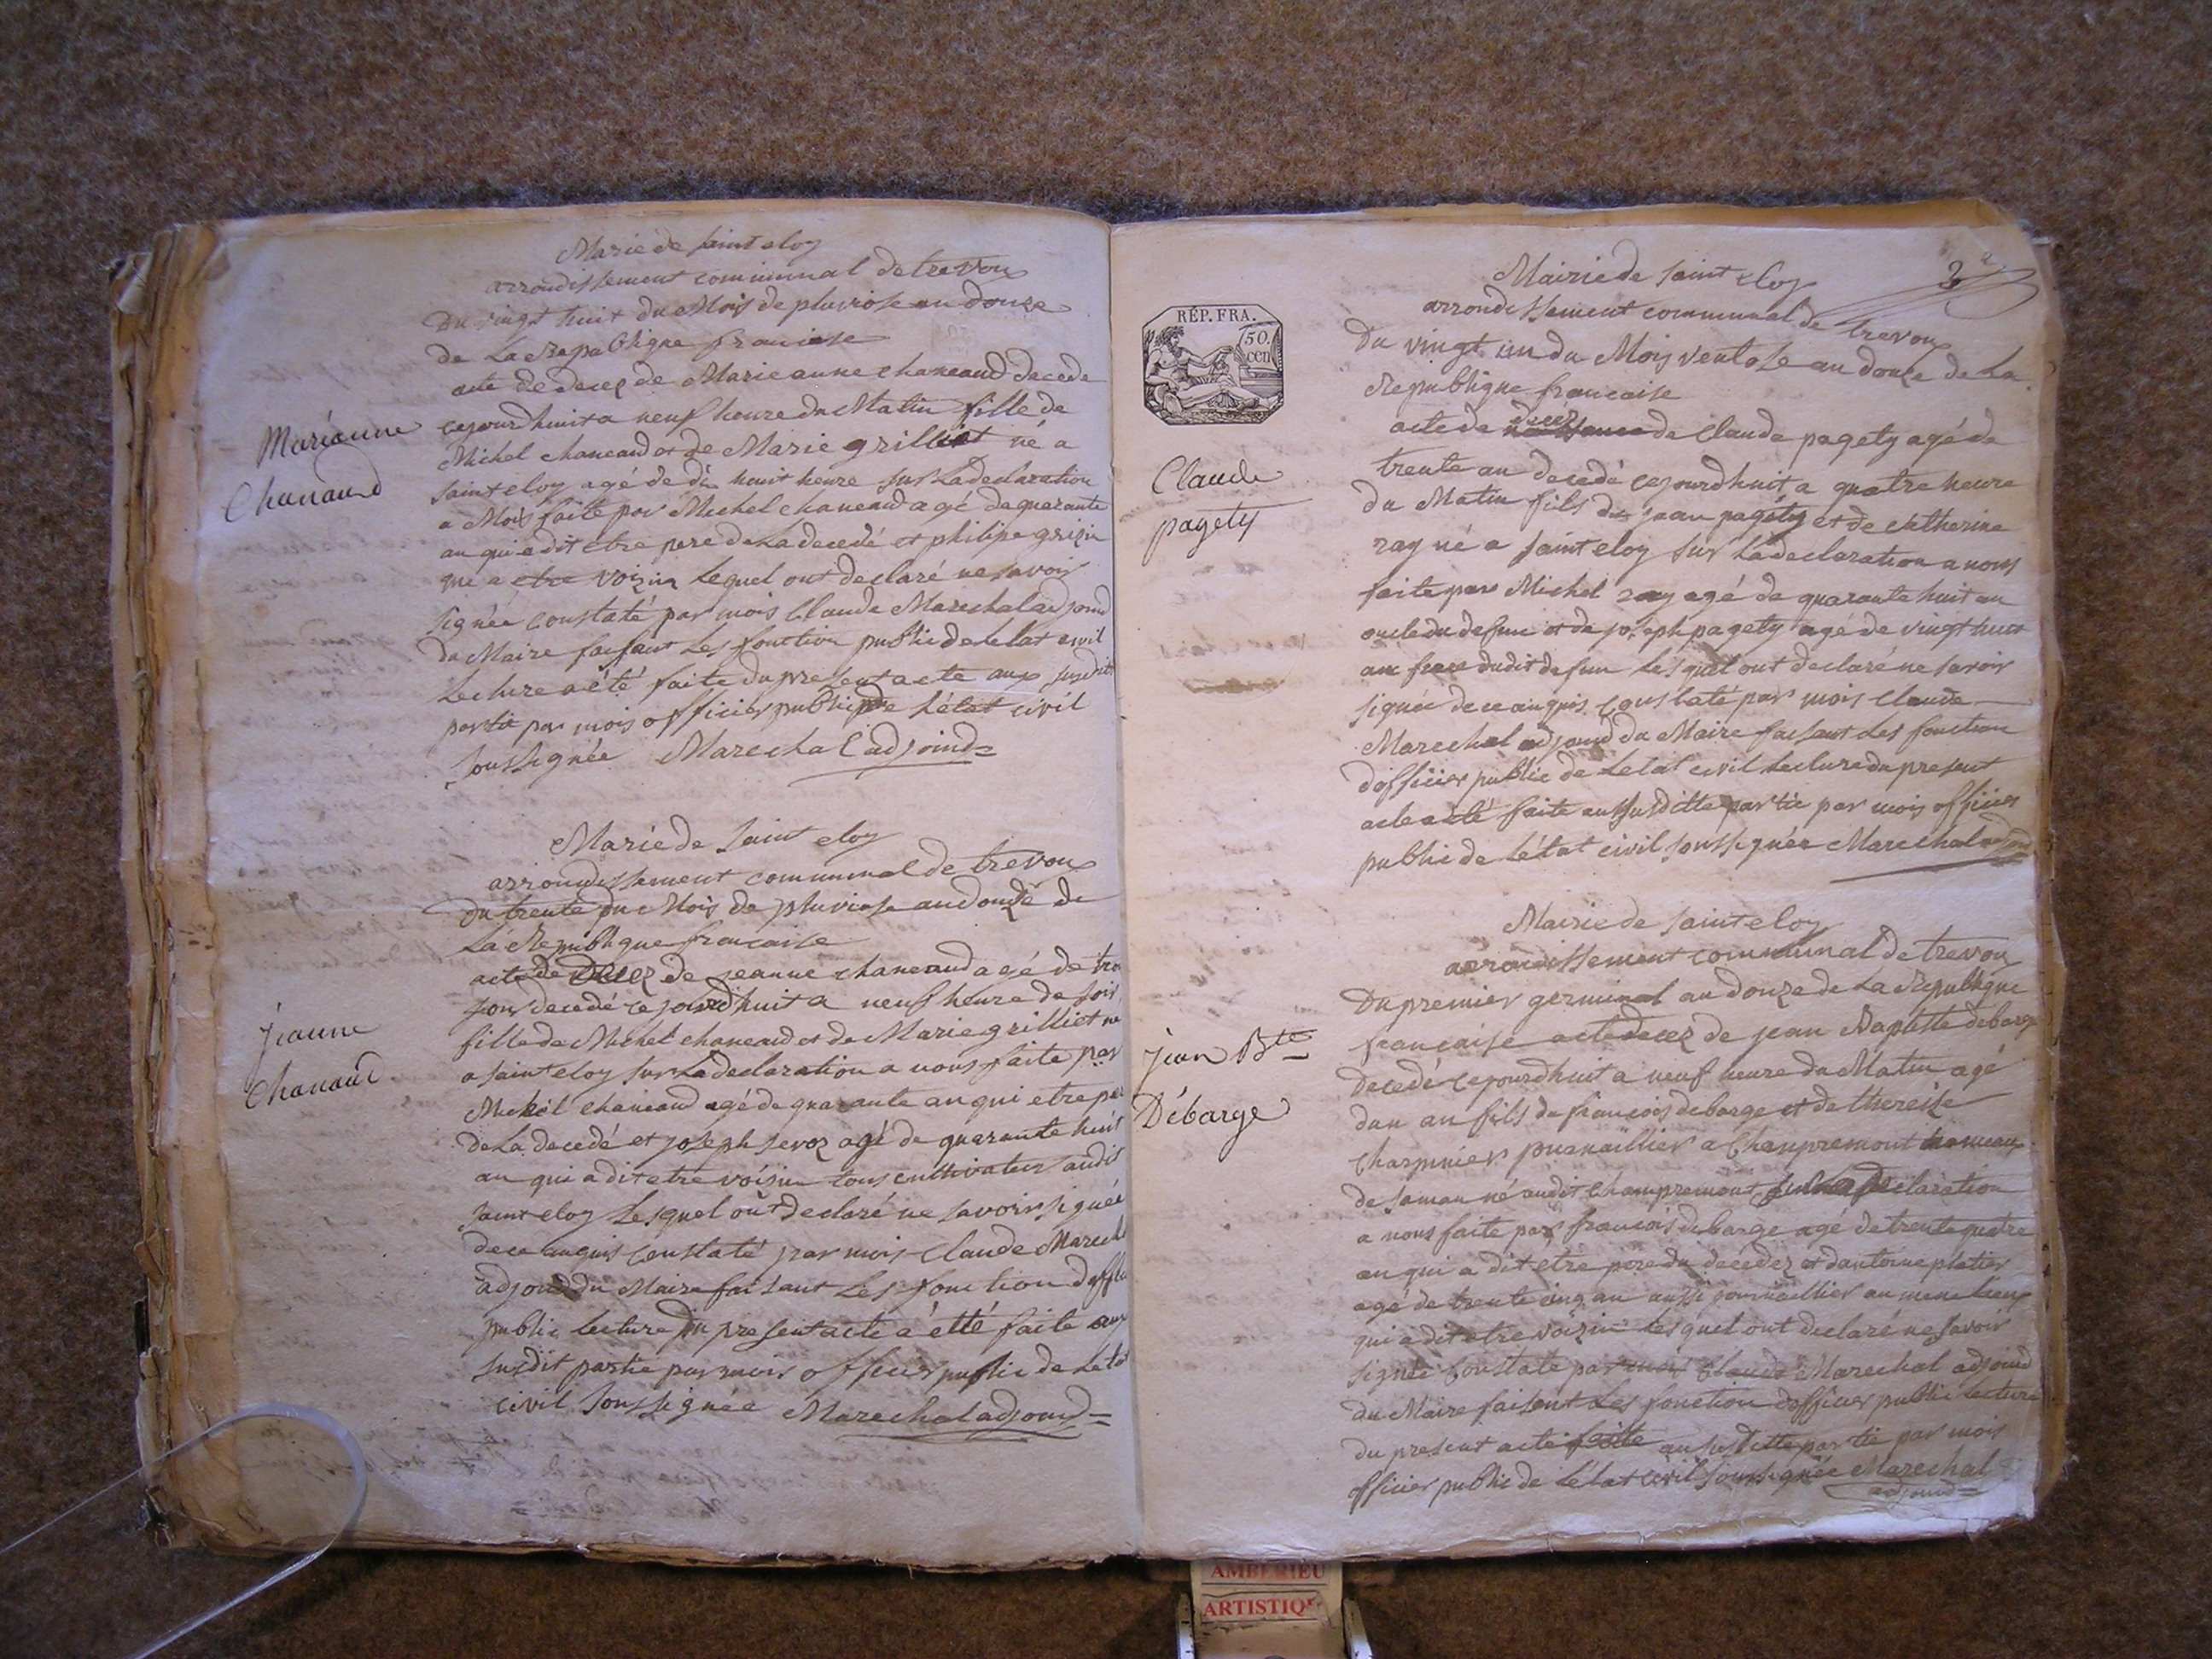 Marie de saint eloy
arrondissement communal de trevoux
Du vingt huit du Mois de pluviose an douze
de La Republique francaise
acte de decez de Marie anne chaneaud decede
cejourdhuit a neuf heure du Matin fille de
Marianne
Chanaud
Michel chaneaud et de Marie grilliet né a
saint eloy agé de dix huit heure sur La declaration
a Mois faite par Michel chaneaud agé de quarante
an qui a dit etre pere de La decedé et philipe
qui a etre voizin Lequel ont declaré ne savoir
signée constaté par mois Claude Marechal adjoind
du Maire faisant Les fonction public de Letat civil
Lecture a été faite du present acte aux susdit
partie par mois officier public de Létat civil
soussignée Marechal adjoind
Marie de saint eloy
arrondissement communal de trevoux
du trente du Mois de pluviose an douze de
La Republique francaise
acte de decez de jeanne chaneaud agé de
jour decedé cejourdhuit a neuf heure de soir
Jeanne
Chanaud
fille de Michel chaneaud et de Marie grilliet né
a saint eloy sur La declaration a nous faite par
Michel chaneaud agé de quarante an qui etre per
de La decedé et joseph servoz agé de quarante huit
an qui a dit etre voisin tous cultivateur audit
saint eloy Lesquel ont declaré ne savoir signée
de ce anquis constaté par mois Claude Marechal
adjoind du Maire faisant Les fonction
public Lecture du present acte a été faite aux
susdit partie par mois officier public de Letat
civil soussignée Marechal adjoind
Mairie de saint eloy
2
arrondissement communal de trevoux
RÉP. FRA.
50.
cen
Du vingt un du Mois ventose an douze de La
Republique francaise
decez
acte de naissance de Claude pagety agé de
Claude
pagety
trente an decedé cejourdhuit a quatre heure
du Matin fils de jean pagety et de Catherine
ray né a saint eloy sur La declaration a nous
faite par Michel ray agé de quarante huit an
oncle du defun et de joseph pagety agé de vingt huit
an frere dudit defun Lesquel ont declaré ne savoir
signée de ce anquis constaté par mois Claude
Marechal adjoind du Maire faisant Les fonction
dofficier public de Letat civil Lecture du present
acte a eté faite au susditte partie par mois officier
public de Létat civil soussignée Marechal adjoind
Mairie de saint eloy
arrondissement communal de trevoux
Du premier germinal an douze de La Republique
francaise acte decez de jean Baptiste debarge
Jean Bte
Débarge
decedé cejourdhuit a neuf heure du Matin agé
dun an fils de francois debarge et de thereise
charpinier a Champremont hameaux
de saman né audit Champremont sur La declaration
a nous faite par francois debarge agé de trente quatre
an qui a dit etre pere du decedez et dantoine platier
agé de trente cinq an aussi au meme Lieux
qui a dit etre voizin Lesquel ont declaré ne savoir
signée constaté par mois Claude Marechal adjoind
du Maire faisent Les fonction dofficier public Lecture
du present acte faite au susditte partie par mois
officier public de Létat civil soussignée Marechal
adjoind
AMBERIEU
ARTISTIQ